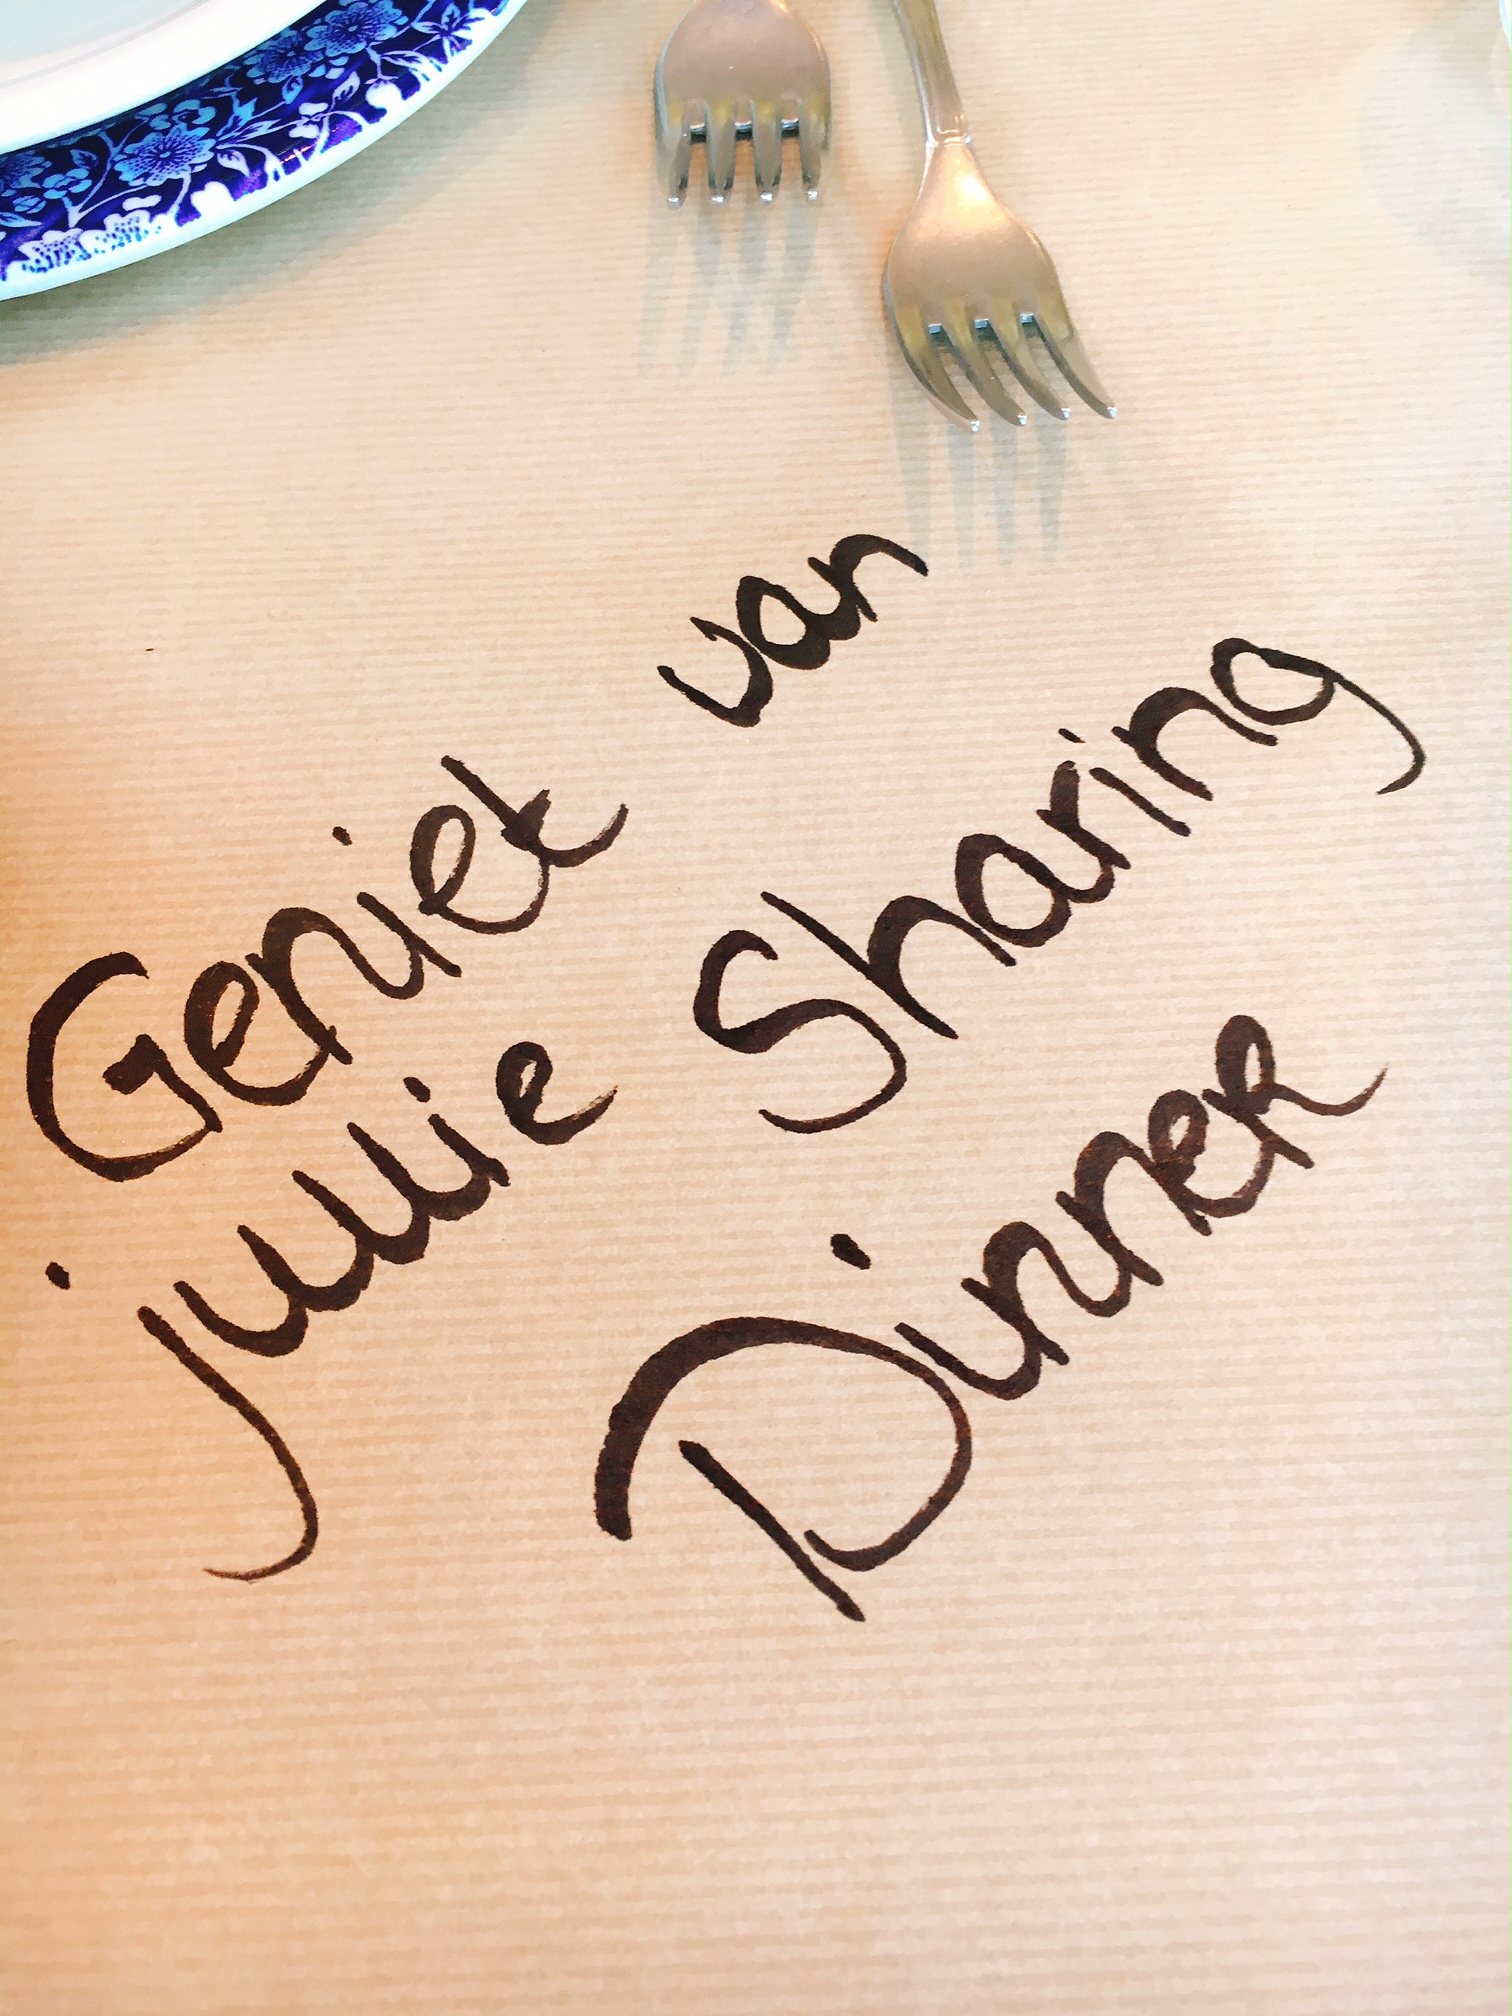 Geniet van
jullie Sharing
Dinner